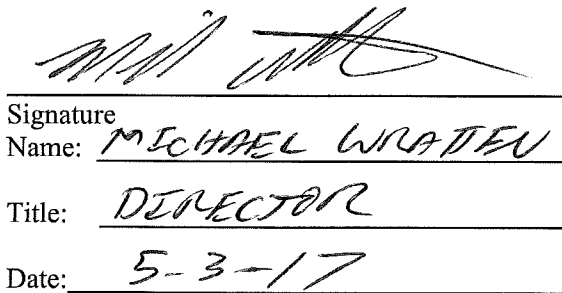 Signature
Name: MICHAEL WRATTEN
Title: DIRECTOR
Date: 5-3-17